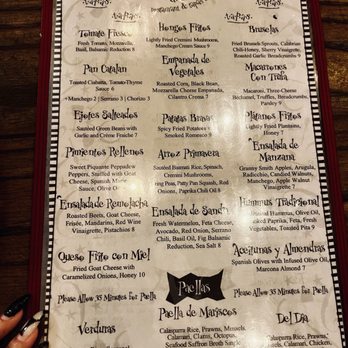 Restaurant & Tapas
Tapas
Tapas
Tomate Fresco
Fresh Tomato, Mozzarella,
Basil, Balsamic Reduction 8
Pan Catalan
Toasted Ciabatta, Tomato-Thyme
Sauce 6
+Manchego 2 | Serrano 3 | Chorizo 3
Ejotes Salteados
Sautéed Green Beans with
Garlic and Crème Fraiche 7
Pimientos Rellenos
Sweet Piquante Peppadew
Peppers, Stuffed with Goat
Cheese, Spanish Marcona
Sauce, Olive O
Ensalada de Remolacha
Roasted Beets, Goat Cheese,
Frisée, Mandarins, Red Wine
Vinaigrette, Pistachios 8
Queso Frito con Miel
Fried Goat Cheese with
Caramelized Onions, Honey 10
Please Allow 35 Minutes for Paella
Verduras
Hongos Fritos
Lightly Fried Cremini Mushrooms,
Manchego Cream Sauce 9
Empanada de
Vegetales
Roasted Corn, Black Bean,
Mozzarella Cheese Empanada,
Cilantro Crema 7
Patatas Bravas
Spicy Fried Potatoes
Smoked Romesco 9
Arroz Primavera
Sautéed Basmati Rice, Spinach,
Cremini Mushrooms,
Spring Peas, Patty Pan Squash, Red
Onions, Paprika Chili Oil 8
Ensalada de Sandía
Fresh Watermelon, Feta Cheese,
Avocado, Red Onion, Serrano
Chili, Basil Oil, Fig Balsamic
Reduction, Sea Salt 8
Paellas
Paella de Mariscos
Calasparra Rice, Prawns, Mussels,
Calamari, Clams, Octopus,
Seafood Saffron Broth Single
Bruselas
Fried Brussels Sprouts, Calabrian
Chili-Honey, Sherry Vinaigrette,
Roasted Garlic, Breadcrumbs 9
Macarrones
Con Trufa
Macaroni, Three-Cheese
Béchamel, Truffles, Breadcrumbs,
Parsley 9
Plátanos Fritos
Lightly Fried Plantains,
Honey 7
Ensalada de
Manzana
Granny Smith Apples, Arugula,
Radicchio, Candied Walnuts,
Manchego, Apple Walnut
Vinaigrette 7
Hummus Tradicional
Hummus, Olive Oil,
Paprika, Feta, Fresh
Vegetables, Toasted Pita 9
Aceitunas y Almendras
Spanish Olives with Infused Olive Oil,
Marcona Almond 7
Please Allow 35 Minutes for Paella
Del Dia
Calasparra Rice, Prawns,